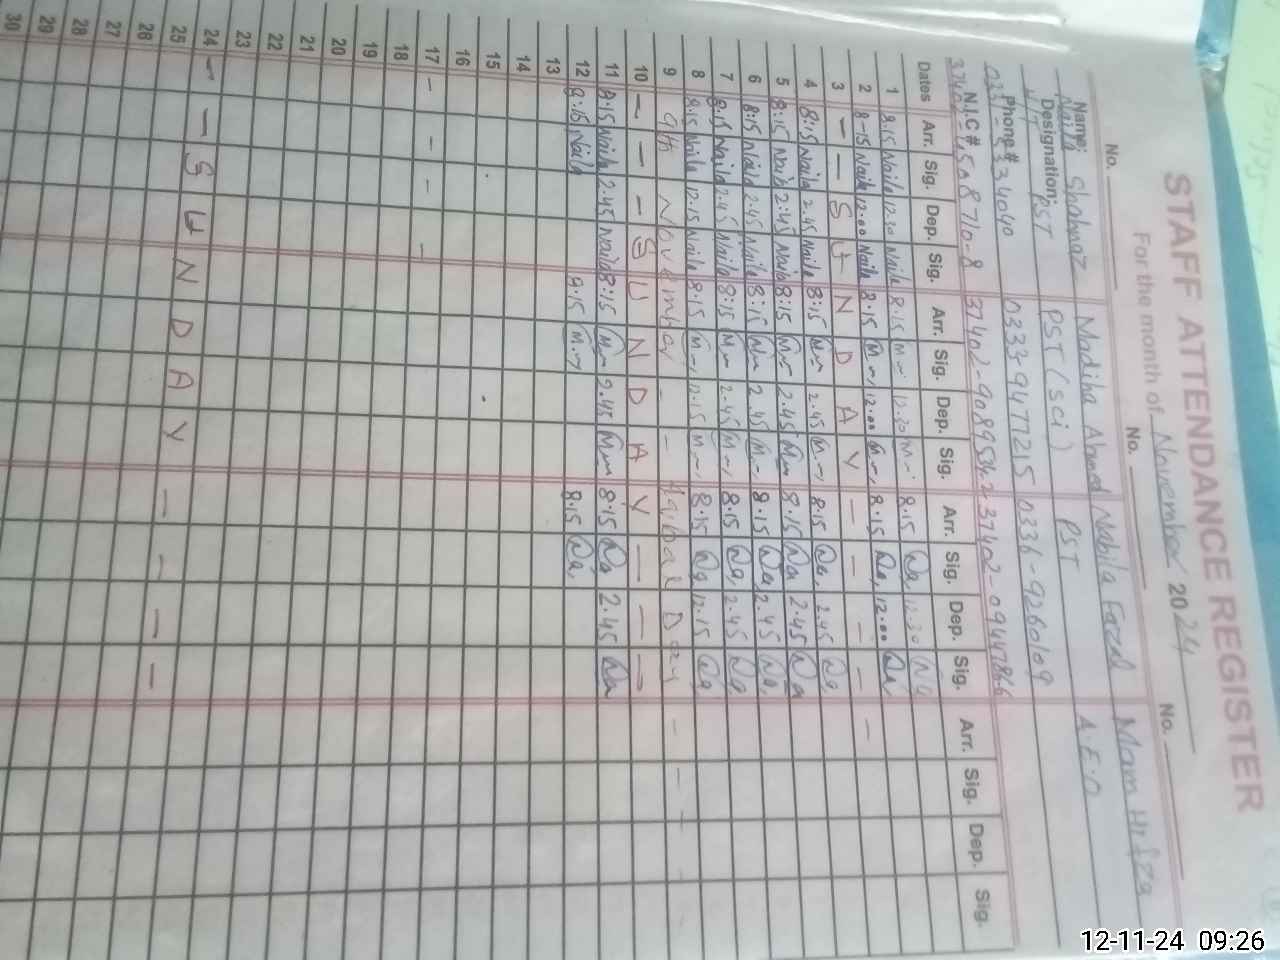 STAFF ATTENDANCE REGISTER
For the month of November 2024
No. No. No.
Name: Naila Shahnaz Madiha Ahmed Nabila Fazal Mam Hifza
Designation: PST PST (Sci) PST A.E.O
Phone# 0333 9477215 0336-9260109
N.I.C # 37402-9089534-2 37402-0944786-6
Dates Arr. Sig. Dep. Sig. Arr. Sig. Dep. Sig. Arr. Sig. Dep. Sig. Arr. Sig. Dep. Sig.
1 8.15 Naila 12.30 Naila 8.15 12.30 8.15 12.30
2 8-15 Naila 12.00 Naila 8.15 12.00 8.15 12.00
3 - - S U N D A Y - - - -
4 8:15 Naila 2.45 Naila 8:15 2.45 8.15 2.45
5 8:15 Naila 2:45 Naila 8:15 2.45 8.15 2.45
6 8:15 Naila 2.45 Naila 8:15 2.45 8.15 2.45
7 8:15 Naila 2.45 Naila 8:15 2.45 8.15 2.45
8 8.15 Naila 12.15 Naila 8.15 12.15 8.15 12.15
9 9th November - - Iqbal Day - - - -
10 - - - S U N D A Y - - -
11 8.15 Naila 2.45 Naila 8:15 2.45 8.15 2.45
12 8:15 Naila 8.15 8.15
13
14
15
16
17 - - - -
18
19
20
21
22
23
24 - - S U N D A Y - - - -
25
26
27
28
29
30
12-11-24 09:26